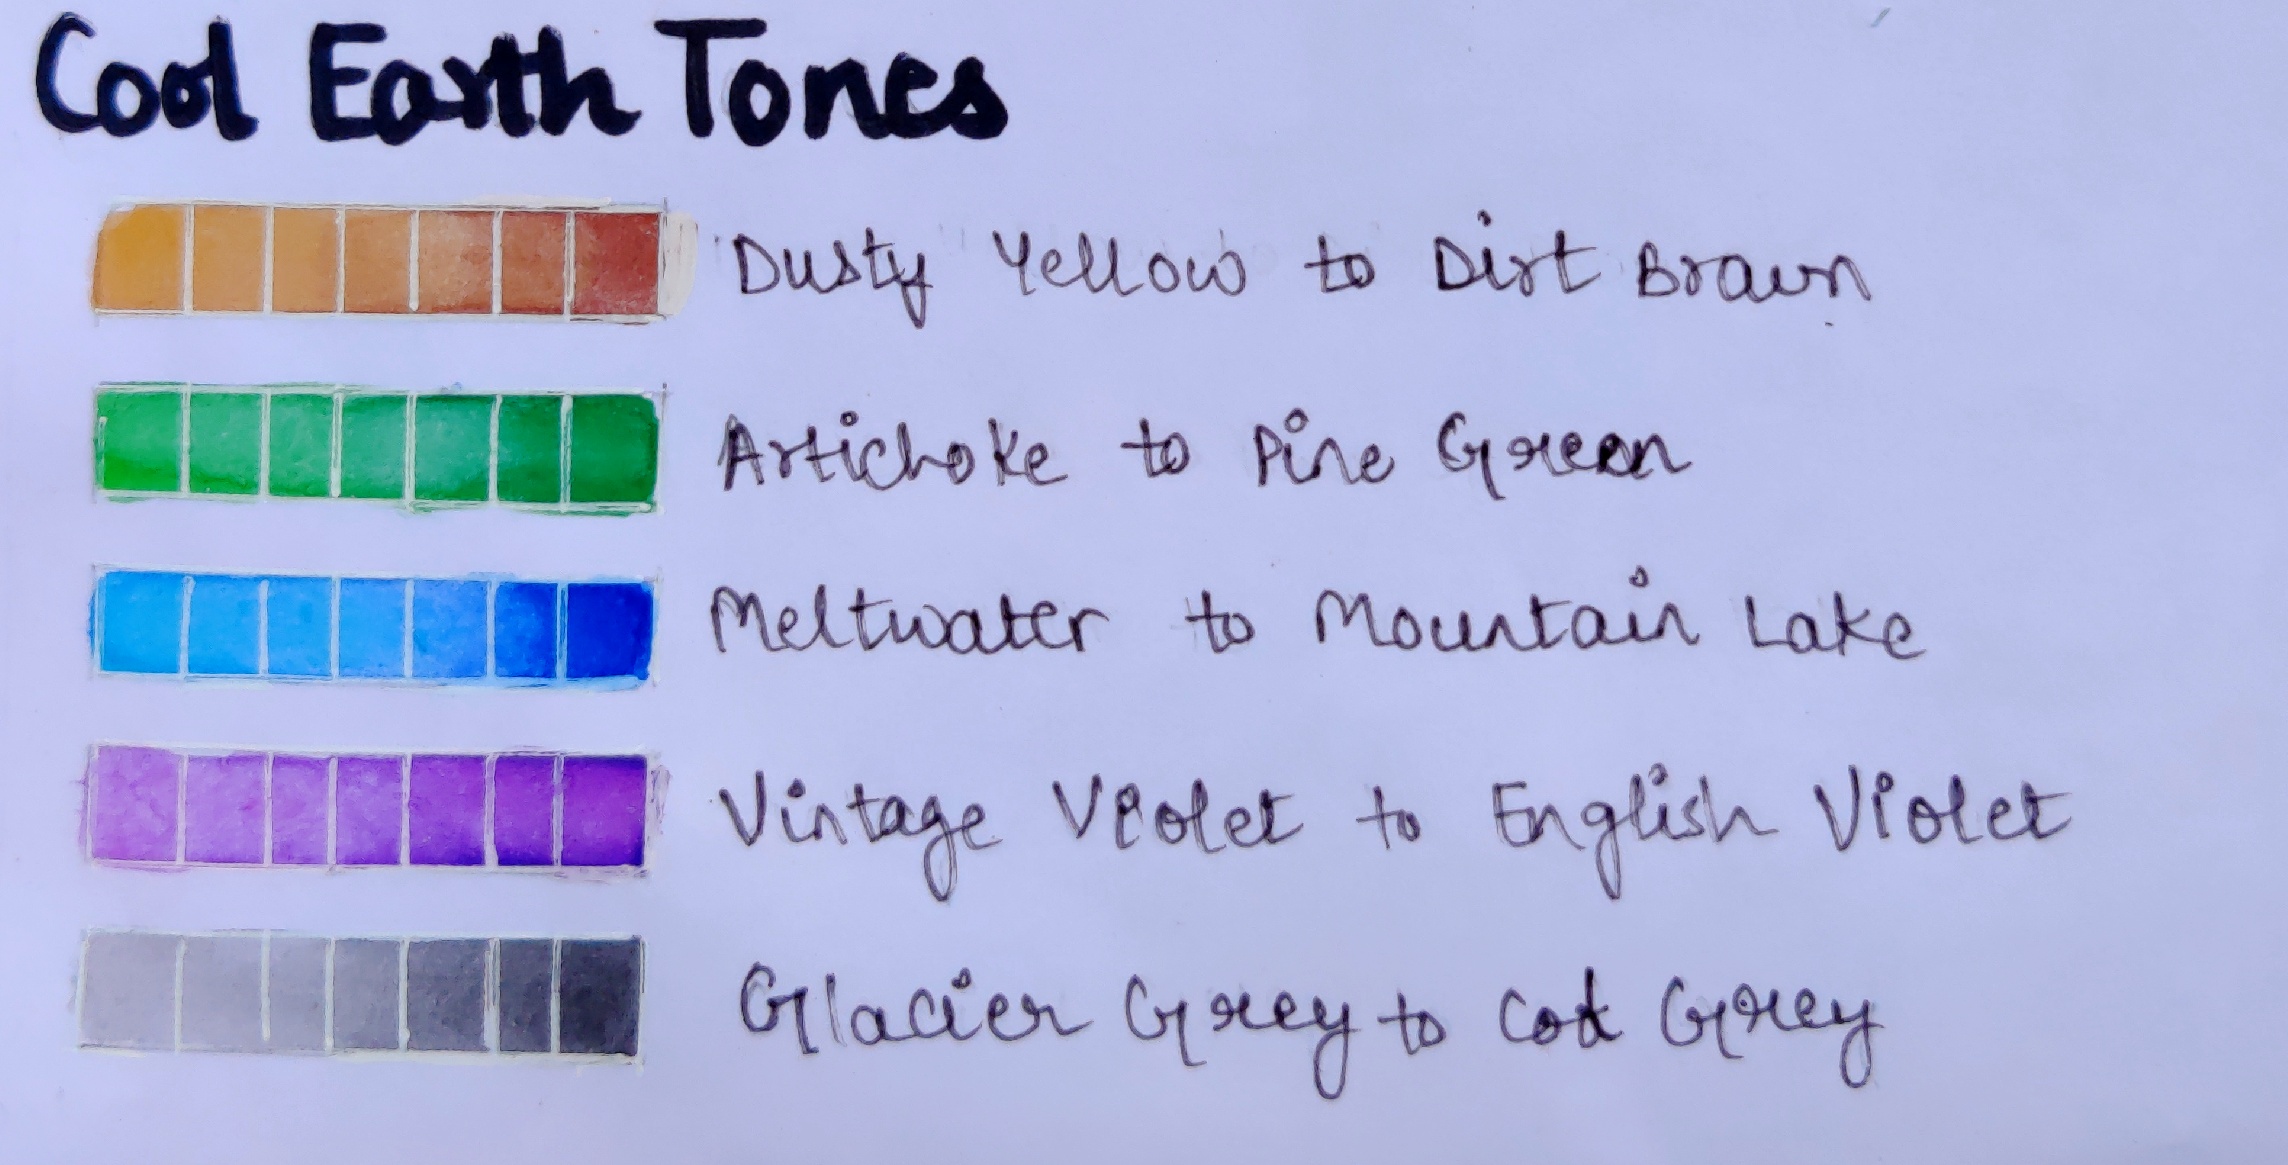 Cool Earth Tones
Dusty Yellow to Dirt Brown
Artichoke to Pine Green
Meltwater to Mountain Lake
Vintage Violet to English Violet
Glacier Grey to Cool Grey